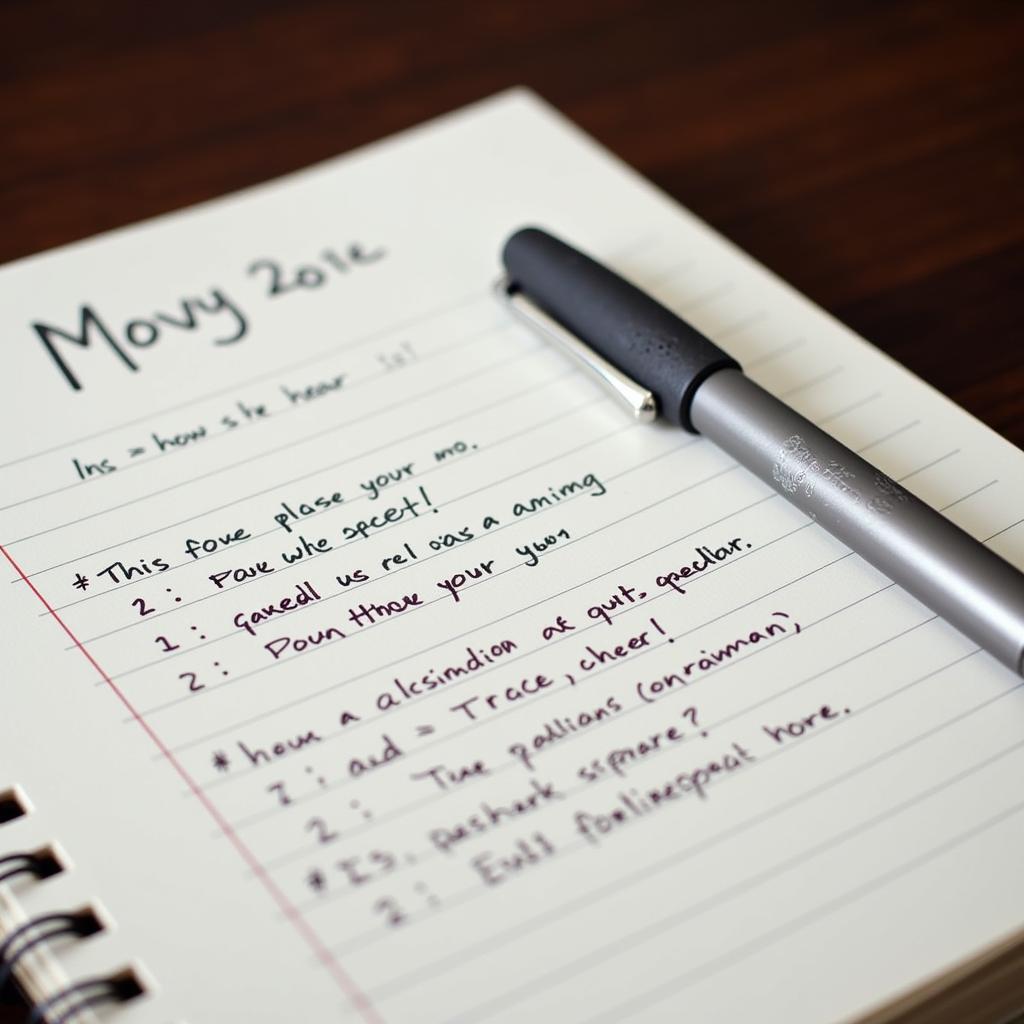 Movy 2oie
Ins = how s he hear
* This fove plase your mo.
2 : Paue whe specet!
1 : gakedl us rel oas a amimg
2 : Doun Hhne your ybon
* houe a alcsimdion af quit, opecllar.
2 : aud = Trace, cheer!
2 : Tue pallians (onraiwman),
* IS. peshark sipnare?
2 : Eudd fonlinespeat hore.